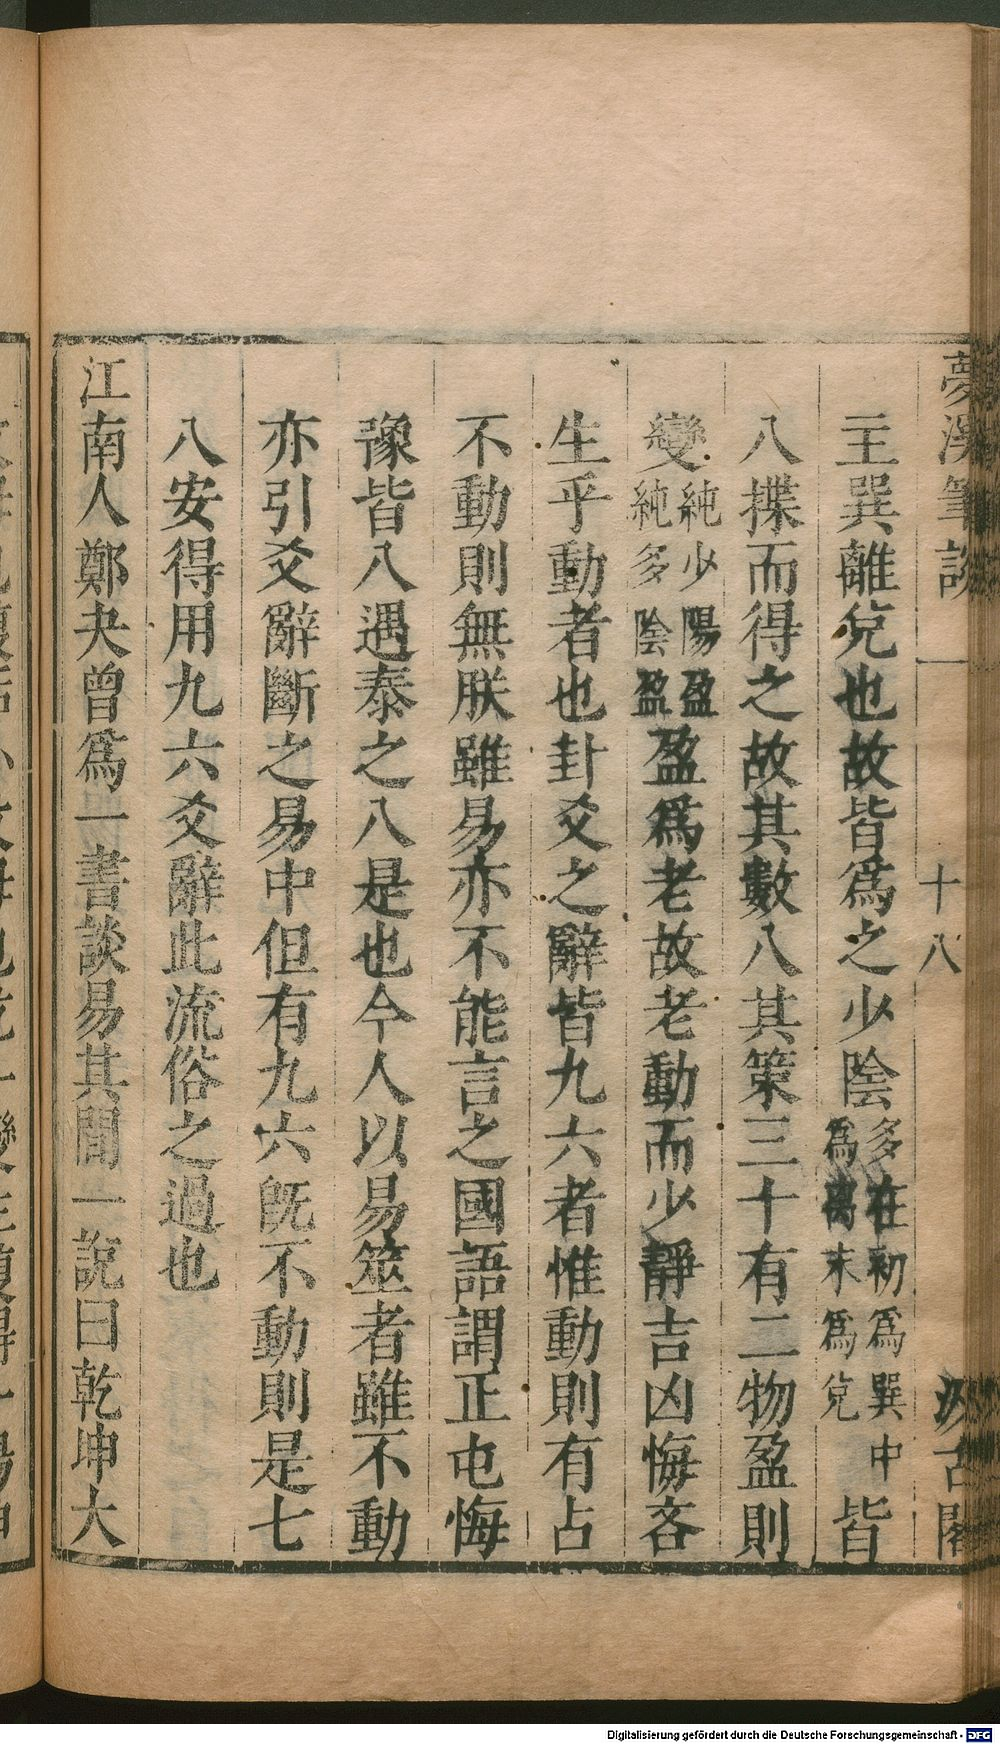 夢溪筆談 一 十八 汲古閣
主巽離兌也故皆爲之少陰多在初爲巽中爲離末爲兌皆
八揲而得之故其數八其策三十有二物盈則
變純少陽盈純多陰盈盈爲老故老動而少靜吉凶悔吝
生乎動者也卦爻之辭皆九六者惟動則有占
不動則無朕雖易亦不能言之國語謂正屯悔
豫皆八遇泰之八是也今人以易筮者雖不動
亦引爻辭斷之易中但有九六旣不動則是七
八安得用九六爻辭此流俗之過也
江南人鄭夬曾爲一書談易其間一說曰乾坤大
Digitalisierung gefördert durch die Deutsche Forschungsgemeinschaft - DFG